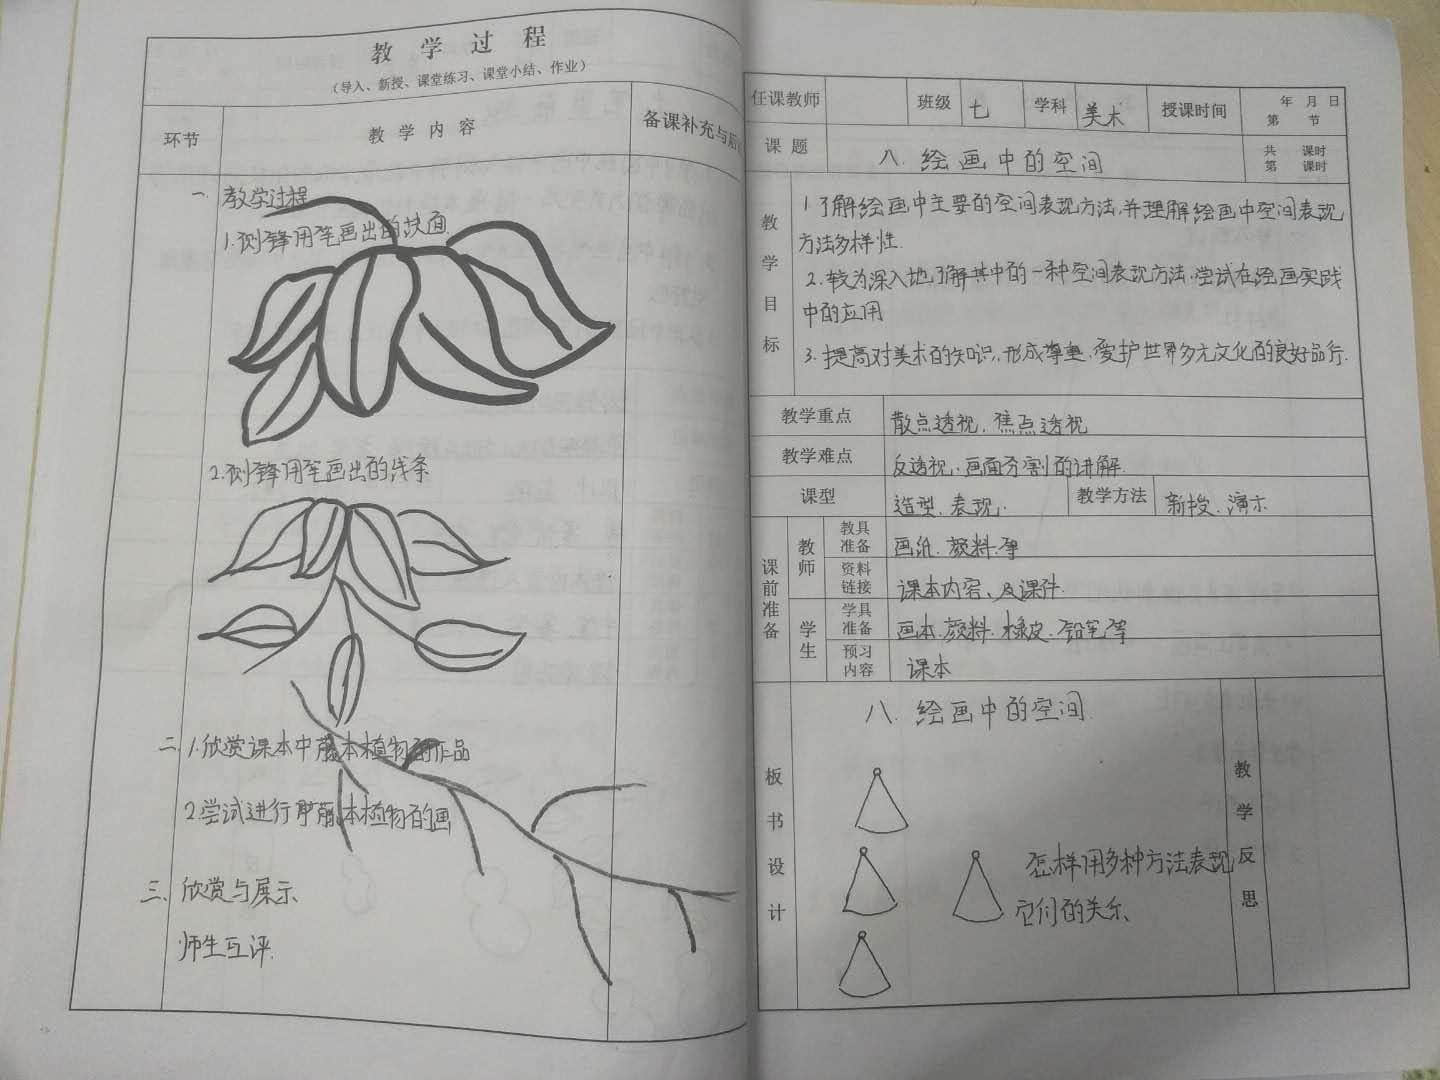 教 学 过 程
（导入、新授、课堂练习、课堂小结、作业）
环节
教 学 内 容
备课补充与
一、教学过程
1.侧锋用笔画出的块面.
2.侧锋用笔画出的线条
二、1.欣赏课本中藤本植物的作品
2.尝试进行藤本植物的画
三、欣赏与展示
师生互评.
任课教师
班级 七
学科 美术
授课时间
年 月 日
第 节
课 题
八、绘画中的空间
共 课时
第 课时
教学目标
1.了解绘画中主要的空间表现方法,并理解绘画中空间表现
方法多样性.
2.较为深入地了解其中的一种空间表现方法,尝试在绘画实践
中的应用
3.提高对美术的知识,形成尊重、爱护世界多元文化的良好品行.
教学重点
散点透视、焦点透视
教学难点
反透视、画面分割的讲解.
课型
造型、表现.
教学方法
新授、演示
课前准备
教师
教具准备
画纸、颜料.等
资料链接
课本内容、及课件.
学生
学具准备
画本、颜料、橡皮、铅笔等
预习内容
课本
板书设计
八、绘画中的空间.
怎样用多种方法表现
它们的关系
教学反思